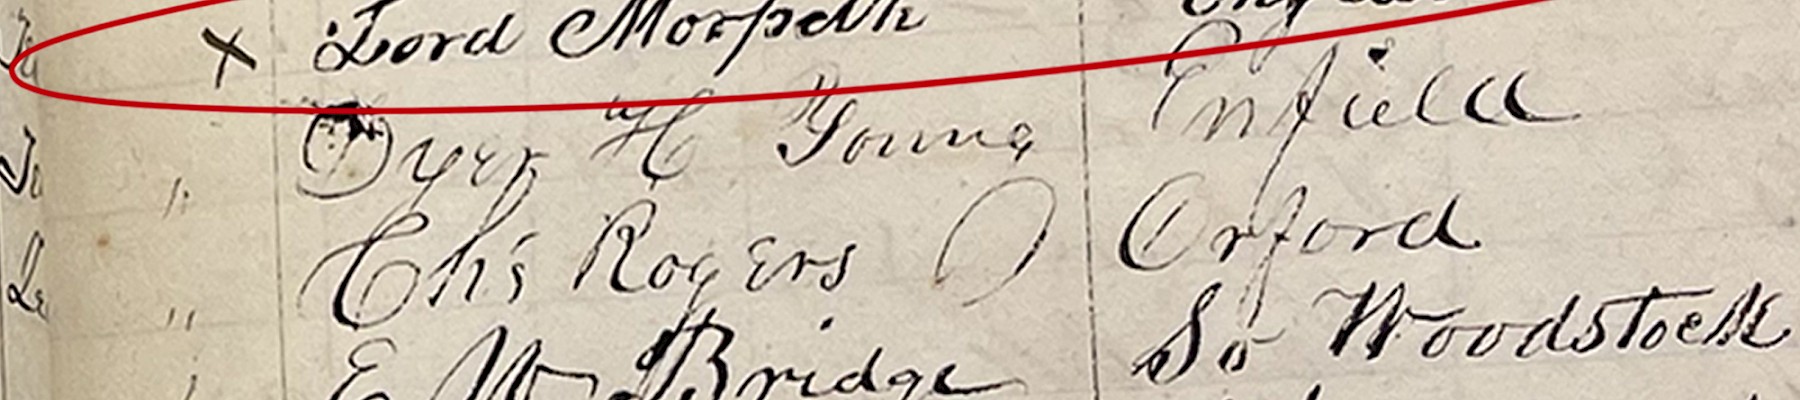 x Lord Morpeth England
Dyer H Young Enfield
" Chs Rogers Orford
" E W Bridge So Woodstock